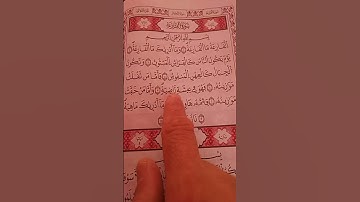 سُورَةُ القَارِعَةِ
بِسْمِ اللَّهِ الرَّحْمَٰنِ الرَّحِيمِ
الْقَارِعَةُ ۝ مَا الْقَارِعَةُ ۝ وَمَا أَدْرَىٰكَ مَا الْقَارِعَةُ ۝
يَوْمَ يَكُونُ النَّاسُ كَالْفَرَاشِ الْمَبْثُوثِ ۝ وَتَكُونُ
الْجِبَالُ كَالْعِهْنِ الْمَنْفُوشِ ۝ فَأَمَّا مَنْ ثَقُلَتْ
مَوَازِينُهُ ۝ فَهُوَ فِي عِيشَةٍ رَاضِيَةٍ ۝ وَأَمَّا مَنْ خَفَّتْ
مَوَازِينُهُ ۝ فَأُمُّهُ هَاوِيَةٌ ۝ وَمَا أَدْرَىٰكَ مَا هِيَهْ ۝